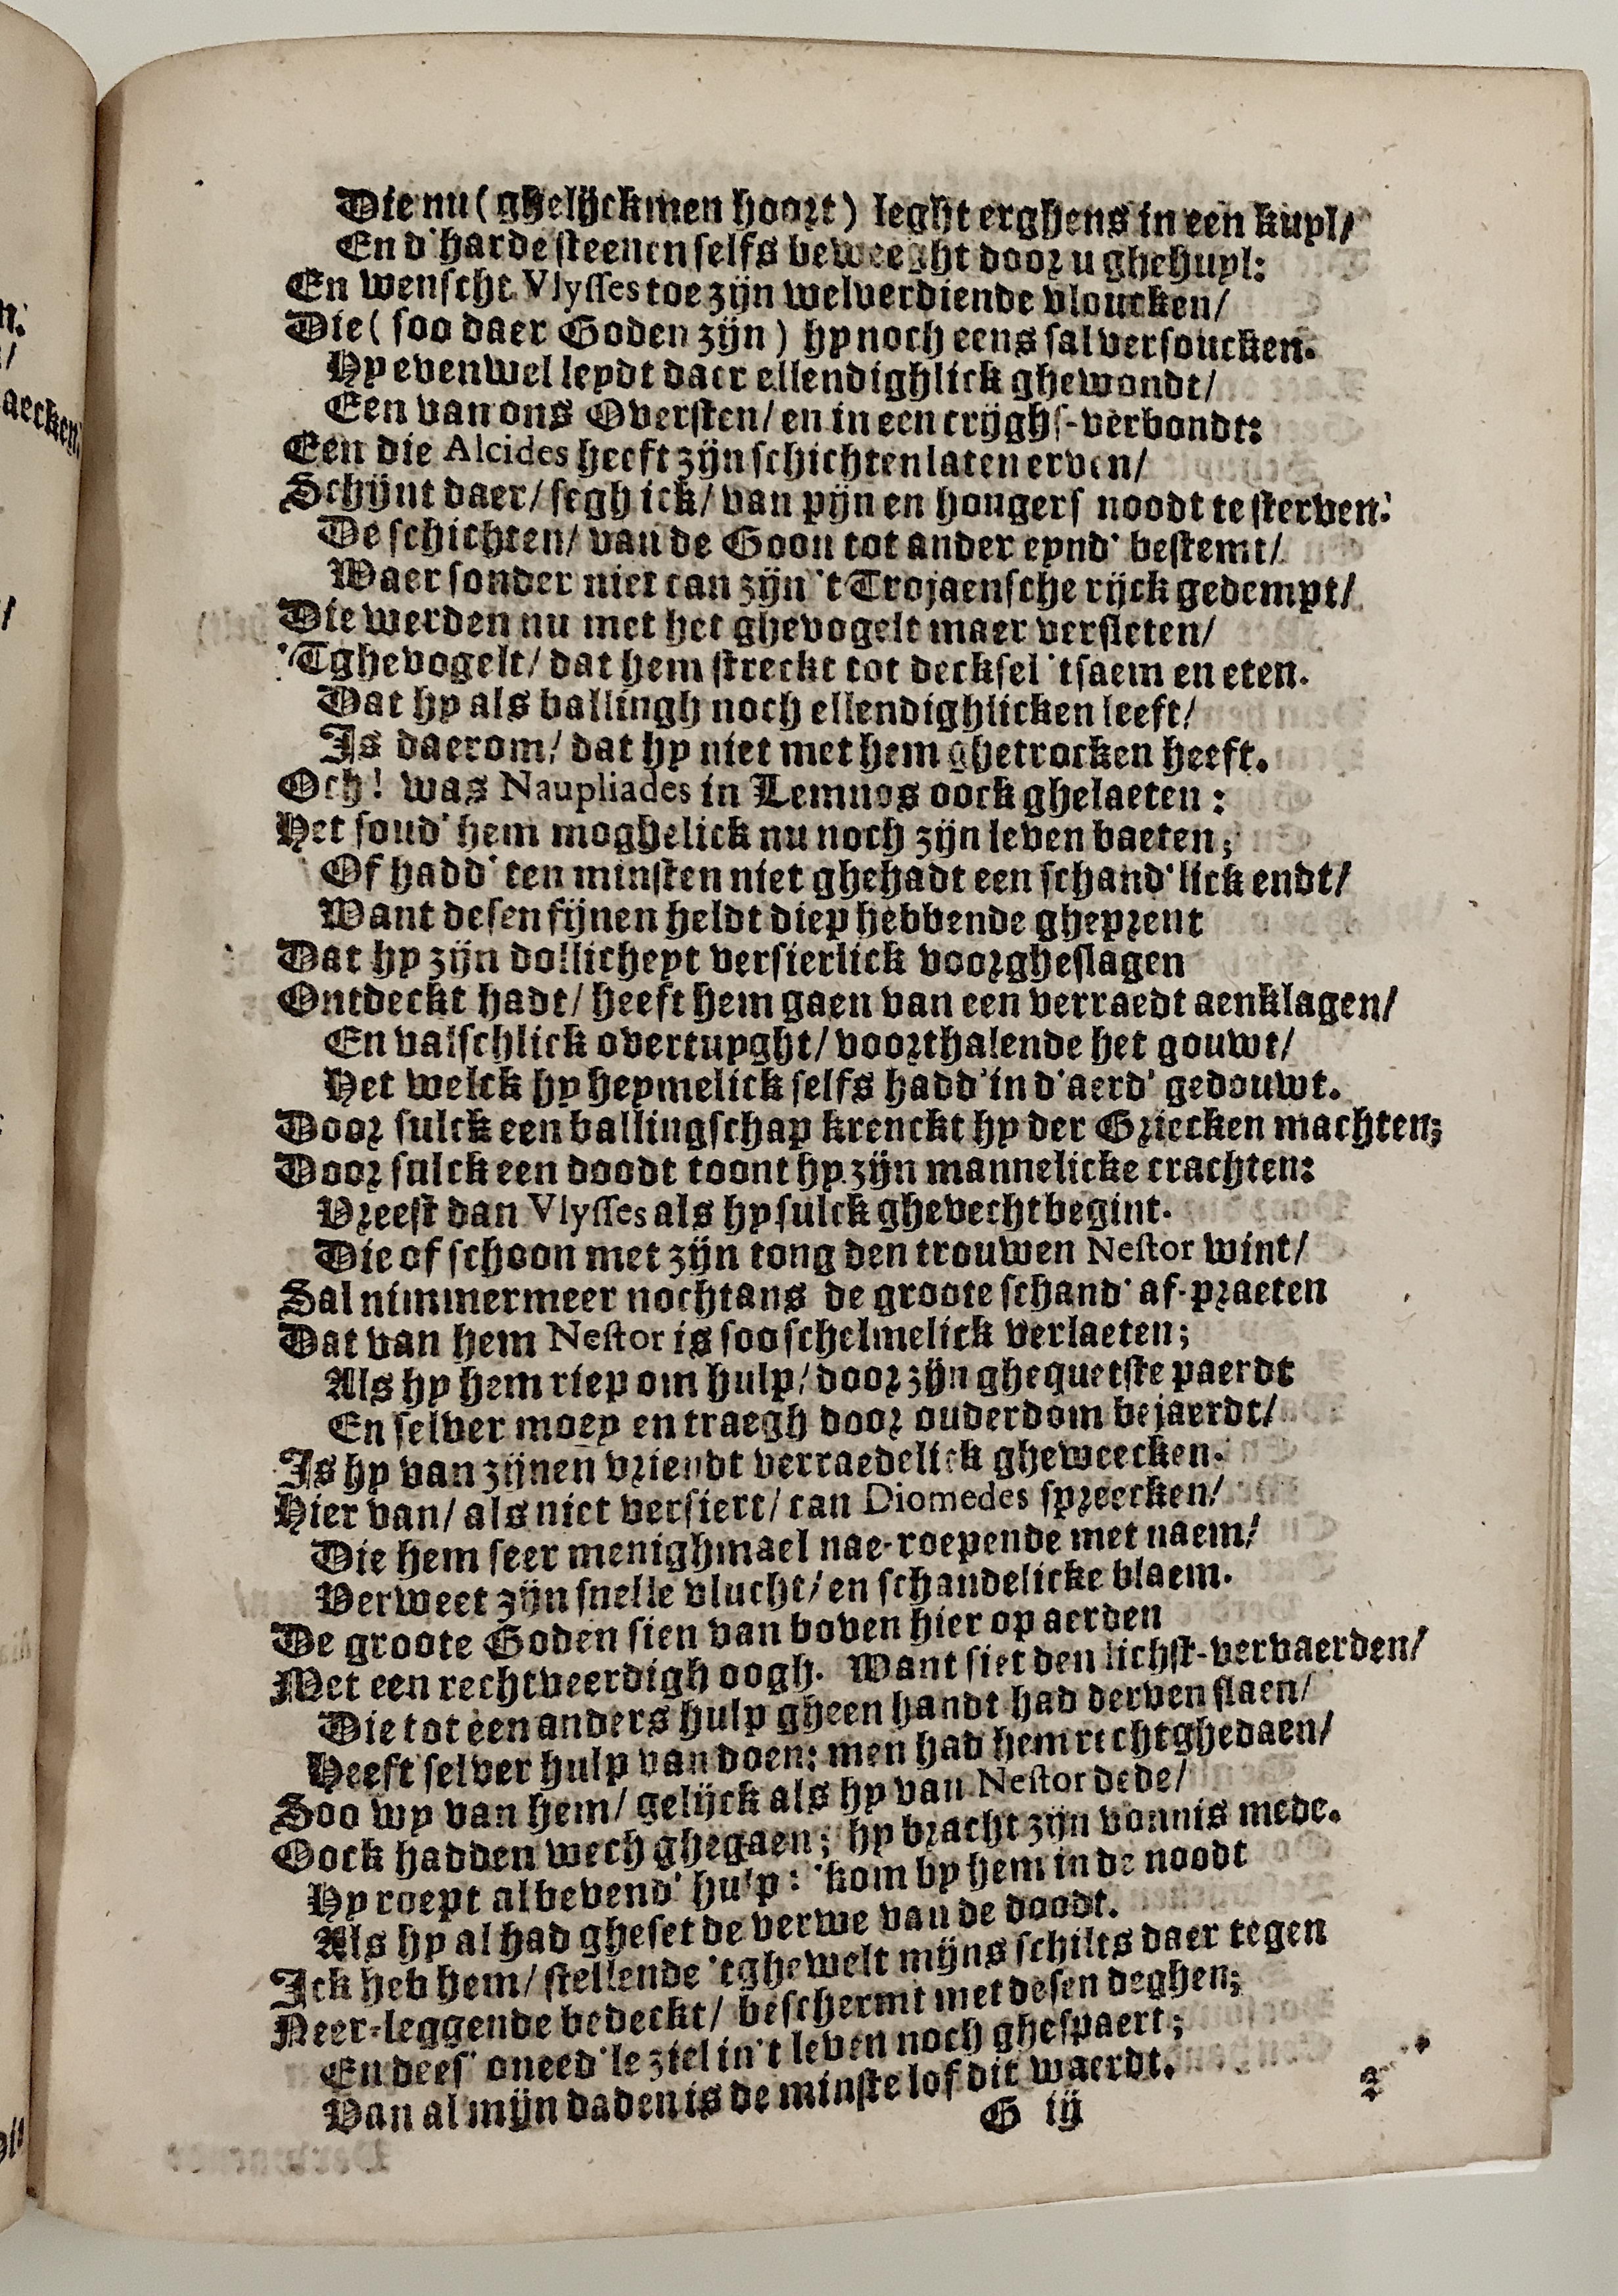 Die nu ( ghelijckmen hoort ) leght erghens in een kuyl/
En d'harde steenen selfs beweeght door u ghehuyl:
En wenscht Vlysses toe zijn welverdiende vloucken/
Die ( soo daer Goden zijn ) hy noch eens sal versoucken.
Hy evenwel leydt daer ellendighlick ghewondt/
Een van ons Oversten/ en in een crijghs-verbondt:
Een die Alcides heeft zijn schichten laten erven/
Schijnt daer/ segh ick/ van pijn en hongers noodt te sterven:
De schichten/ van de Goon tot ander eynd' bestemt/
Waer sonder niet can zijn 't Trojaensche rijck gedempt/
Die werden nu met het ghevogelt maer versleten/
'Tghevogelt/ dat hem streckt tot decksel 'tsaem en eten.
Dat hy als ballingh noch ellendighlicken leeft/
Is daerom/ dat hy niet met hem ghetrocken heeft.
Och! was Naupliades in Lemnos oock ghelaeten :
Het soud' hem moghelick nu noch zijn leven baeten;
Of hadd' ten minsten niet ghehadt een schand'lick endt/
Want desen fijnen heldt diep hebbende gheprent
Dat hy zijn dollicheyt versierlick voorgheslagen
Ontdeckt hadt/ heeft hem gaen van een verraedt aenklagen/
En valschlick overtuyght/ voorthalende het gouwt/
Het welck hy heymelick selfs hadd' in d'aerd' gedouwt.
Door sulck een ballingschap krenckt hy der Griecken machten;
Door sulck een doodt toont hy zijn mannelicke crachten:
Vreest dan Vlysses als hy sulck ghevecht begint.
Die of schoon met zijn tong den trouwen Nestor wint/
Sal nimmermeer nochtans de groote schand' af-praeten
Dat van hem Nestor is soo schelmelick verlaeten;
Als hy hem riep om hulp/ door zijn ghequetste paerdt
En selver moey en traegh door ouderdom bejaerdt/
Is hy van zijnen vriendt verraedelick gheweecken.
Hier van/ als niet versiert/ can Diomedes spreecken/
Die hem seer menighmael nae-roepende met naem/
Verweet zijn snelle vlucht/ en schandelicke blaem.
De groote Goden sien van boven hier op aerden
Met een rechtveerdigh oogh. Want siet den lichst-vervaerden/
Die tot een anders hulp gheen handt had derven slaen/
Heeft selver hulp van doen: men had hem recht ghedaen/
Soo wy van hem/ gelijck als hy van Nestor dede/
Oock hadden wech ghegaen; hy bracht zijn vonnis mede.
Hy roept al bevend' hulp: 'kom by hem in de noodt
Als hy al had gheset de verwe van de doodt.
Ick heb hem/ stellende 'tghewelt mijns schilts daer tegen
Neer-leggende bedeckt/ beschermt met desen deghen;
En dees' oneed'le ziel in't leven noch ghespaert;
Van al mijn daden is de minste lof dit waerdt.
G ij